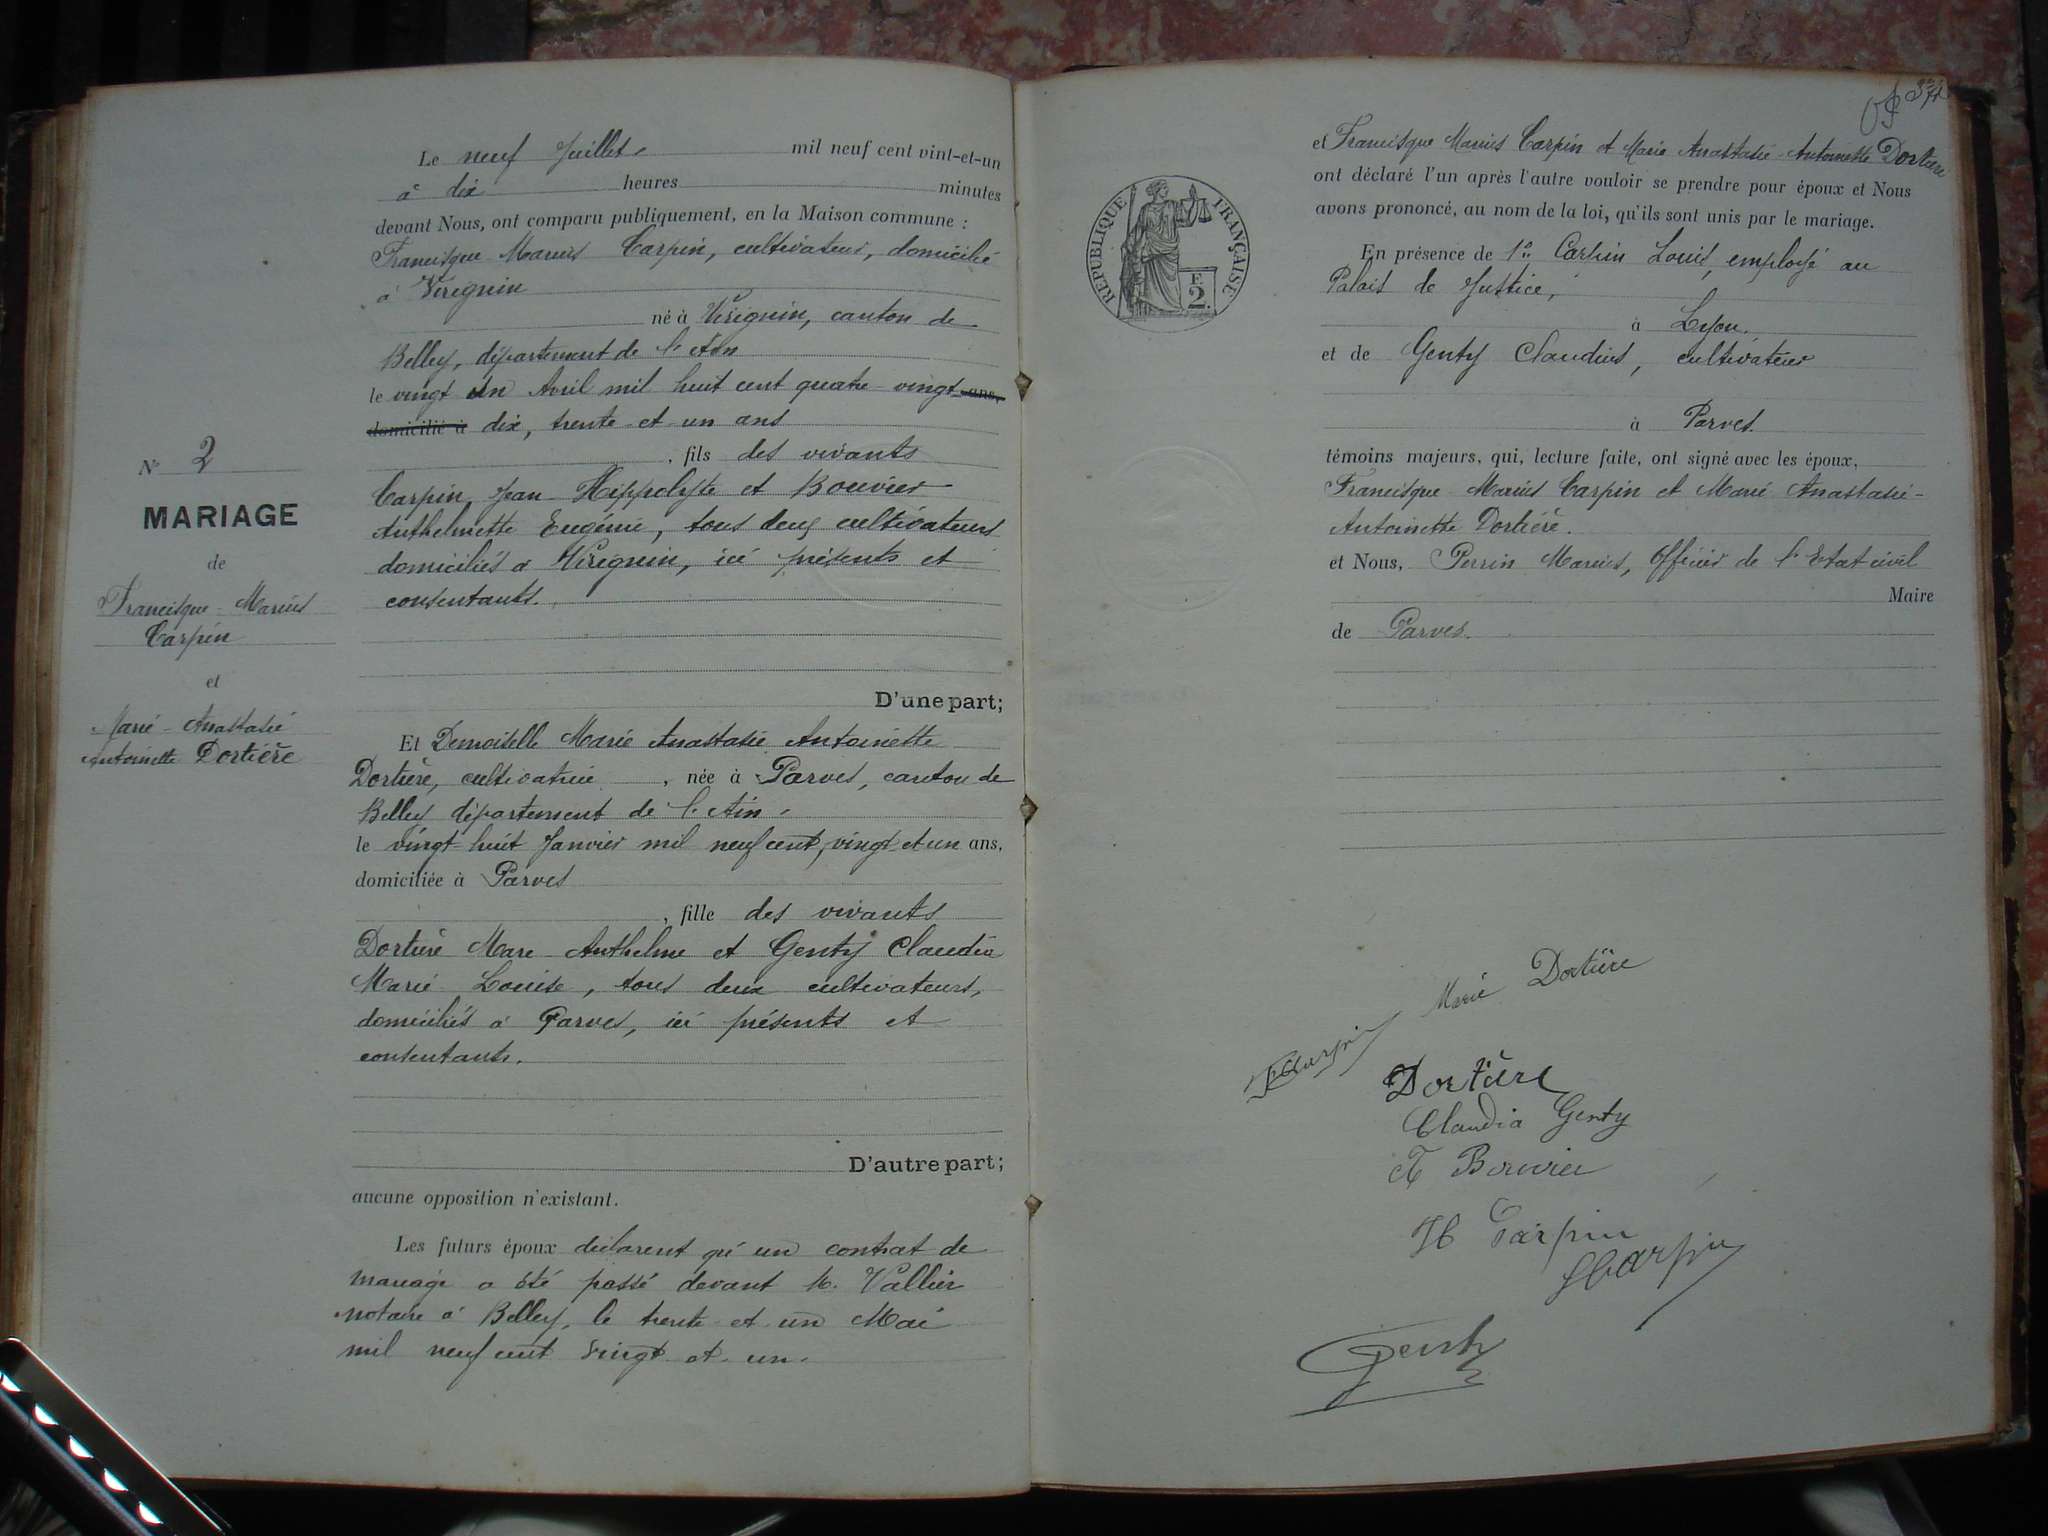 Le neuf Juillet mil neuf cent vint-et-un
à dix heures minutes
devant Nous, ont comparu publiquement, en la Maison commune :
Francisque Marius Carpin, cultivateur, domicilié
à Virignin
né à Virignin, canton de
Belley, département de l'Ain
le vingt un Avril mil huit cent quatre-vingt ans,
domicilié à dix, trente-et-un ans
, fils des vivants
Carpin, Jean-Hippolyte et Bouvier
Anthelmette Eugénie, tous deux cultivateurs
domiciliés à Virignin, ici présents et
consentants.
D'une part;
N° 2
MARIAGE
de
Francisque-Marius
Carpin
et
Marie-Anastasie
Antoinette Dortière
Et Demoiselle Marie Anastasie Antoinette
Dortière, cultivatrice, née à Parves, canton de
Belley département de l'Ain
le vingt-huit Janvier mil neuf cent, vingt et un ans,
domiciliée à Parves
, fille des vivants
Dortière Marc Anthelme et Genty Claudia
Marie Louise, tous deux cultivateurs,
domiciliés à Parves, ici présents et
consentants.
D'autre part;
aucune opposition n'existant.
Les futurs époux déclarent qu'un contrat de
mariage a été passé devant M. Vallier
notaire à Belley, le trente-et-un Mai
mil neuf cent vingt-et-un.
et Francisque Marius Carpin et Marie Anastasie-Antoinette Dortière
ont déclaré l'un après l'autre vouloir se prendre pour époux et Nous
avons prononcé, au nom de la loi, qu'ils sont unis par le mariage.
RÉPUBLIQUE FRANÇAISE
F.
2.
En présence de 1° Carpin Louis, employé au
Palais de Justice,
à Lyon.
et de Genty Claudius, cultivateur
à Parves.
témoins majeurs, qui, lecture faite, ont signé avec les époux,
Francisque-Marius Carpin et Marie Anastasie-
Antoinette Dortière.
et Nous, Perrin Marius, Officier de l'Etat civil
Maire
de Parves.
Marie Dortière
Carpin
Dortière
Claudia Genty
A Bouvier
H Carpin
L Carpin
Genty